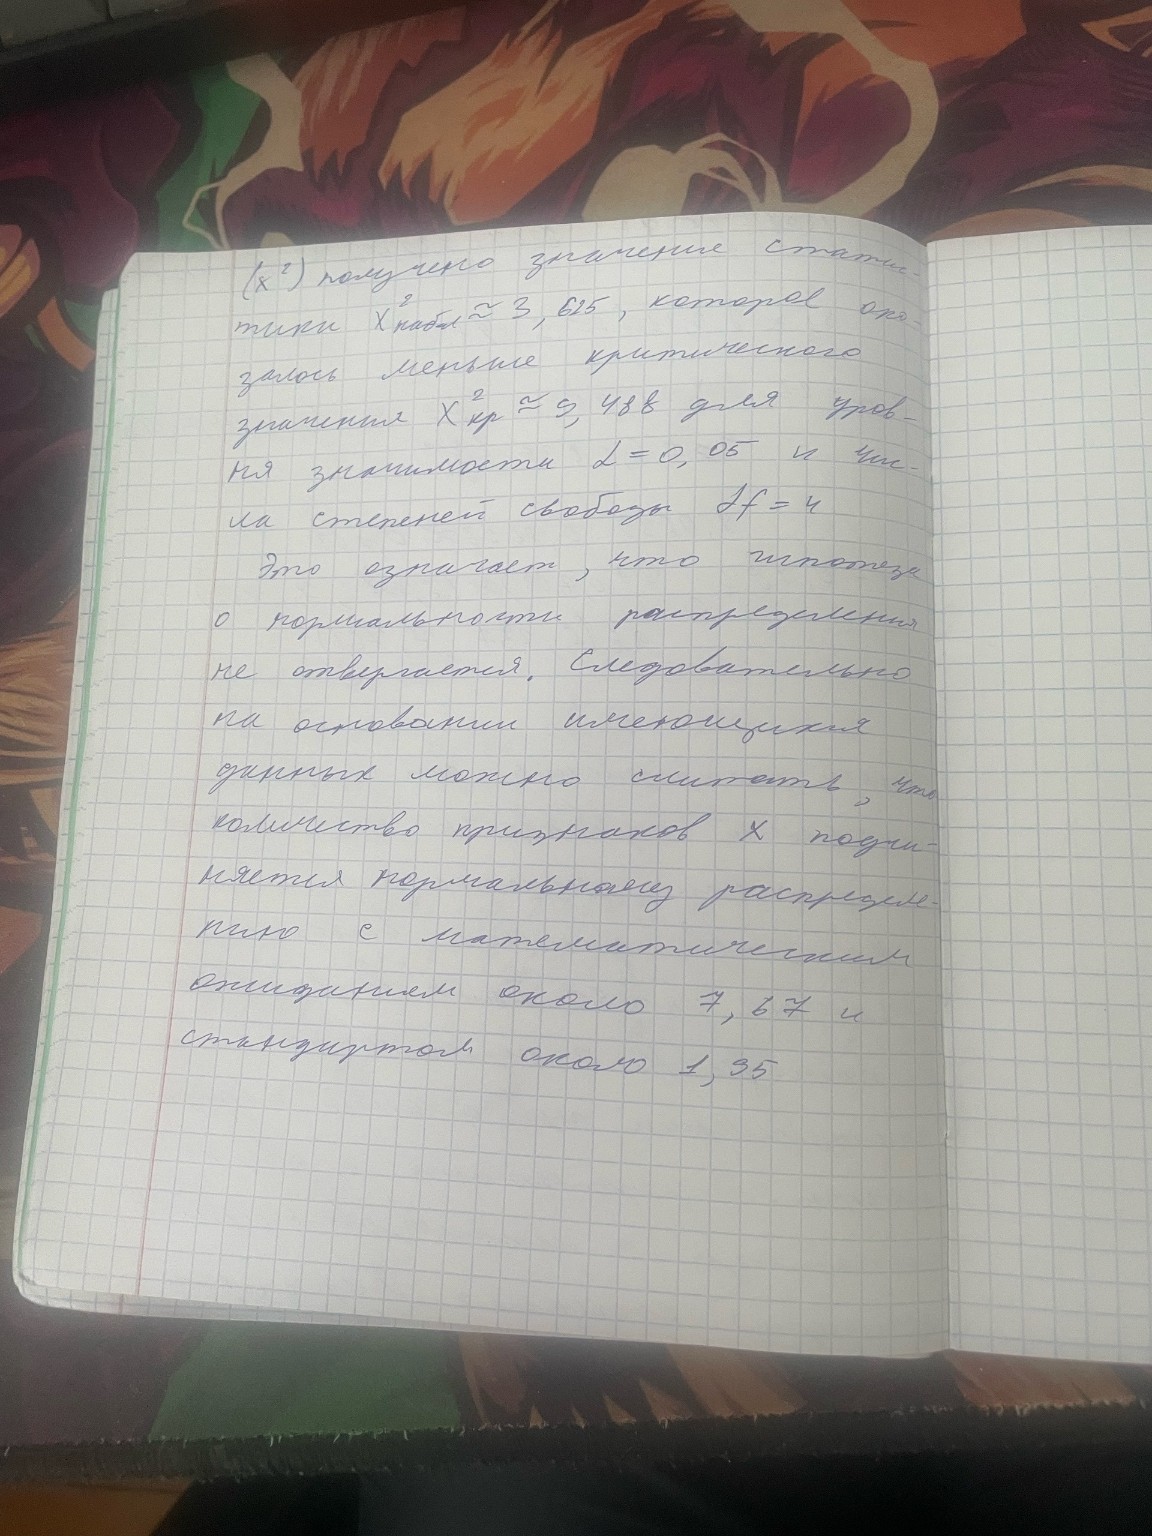 (x²) получено значение статис-
тики X²набл ≈ 3,625, которое ока-
залось меньше критического
значения X²кр ≈ 9,488 для уров-
ня значимости α = 0,05 и чис-
ла степеней свободы df = 4
Это означает, что гипотеза
о нормальности распределения
не отвергается. Следовательно
на основании имеющихся
данных можно считать, что
количество признаков X подчи-
няется нормальному распределе-
нию с математическим
ожиданием около 7,67 и
стандартом около 1,95